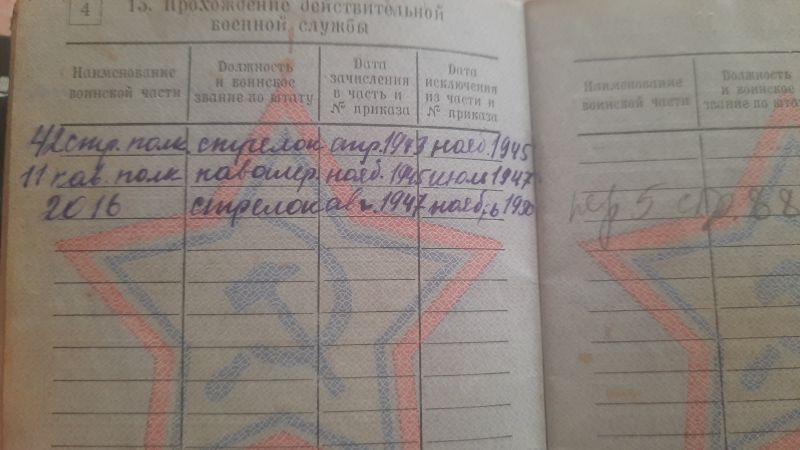 4
13. Прохождение действительной
военной службы
Наименование воинской части
Должность и воинское звание по штату
Дата зачисления в часть и № приказа
Дата исключения из части и № приказа
42 стр. полк стрелок апр. 1943 нояб. 1945
11 кав. полк кавалер. нояб. 1945 июль 1947
2016 стрелок авг. 1947 ноябрь 1950
Наименование воинской части
Должность и воинское звание по штату
5 стр.